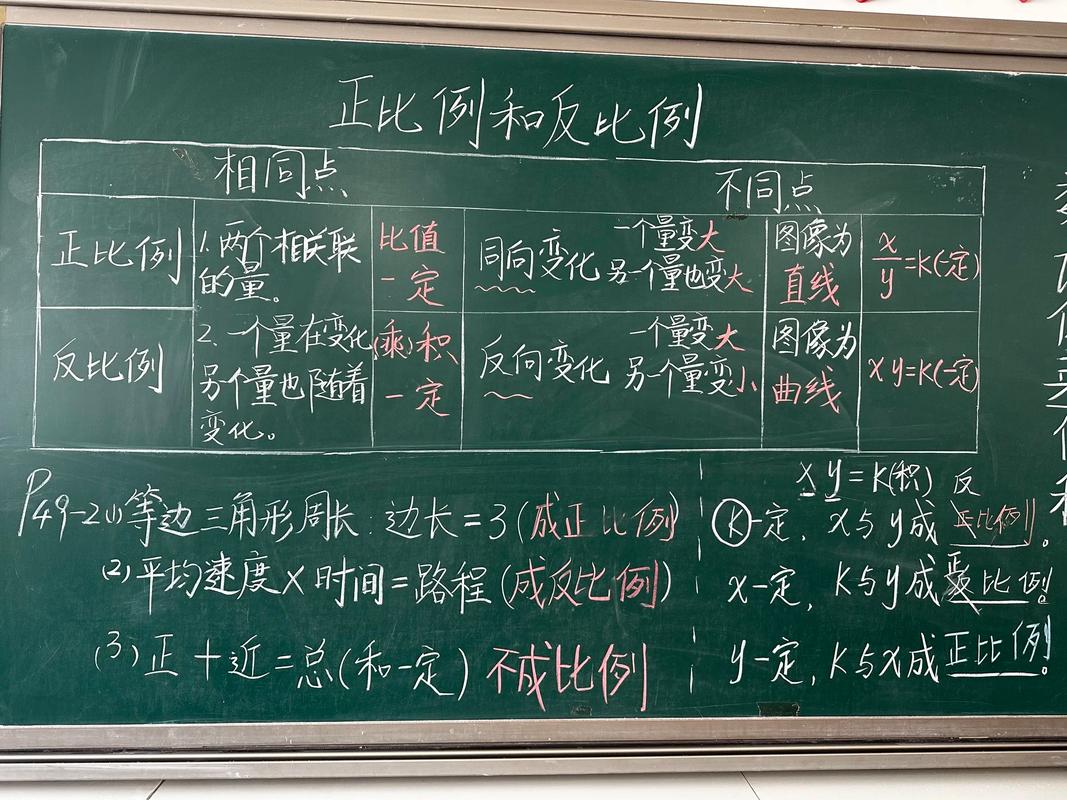 正比例和反比例
相同点
不同点
正比例
1.两个相关联的量。
比值一定
同向变化
一个量变大
另一个量也变大
图像为直线
x/y=K(一定)
反比例
2.一个量在变化
另个量也随着
变化。
(乘)积一定
反向变化
一个量变大
另一个量变小
图像为曲线
xy=K(一定)
P49-2(1)等边三角形周长:边长=3(成正比例)
(2)平均速度×时间=路程(成反比例)
(3)正+近=总(和一定) 不成比例
xy=K(积) 反
K一定, x与y成正比例。
x一定, K与y成正比例。
y一定, K与x成正比例。